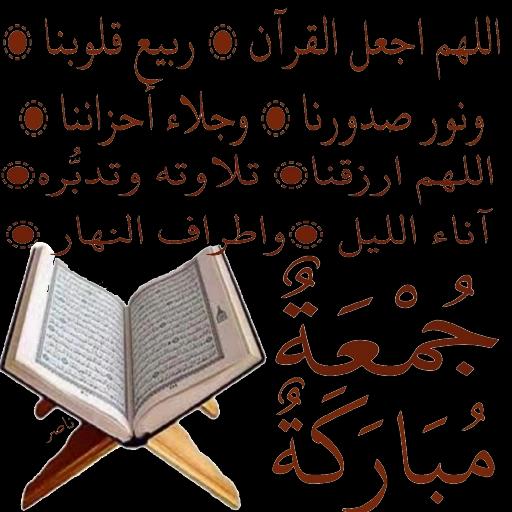 اللهم اجعل القرآن ربيع قلوبنا
ونور صدورنا وجلاء أحزاننا
اللهم ارزقنا تلاوته وتدبُّره
آناء الليل واطراف النهار
جُمْعَةٌ
مُبَارَكَةٌ
ناصر